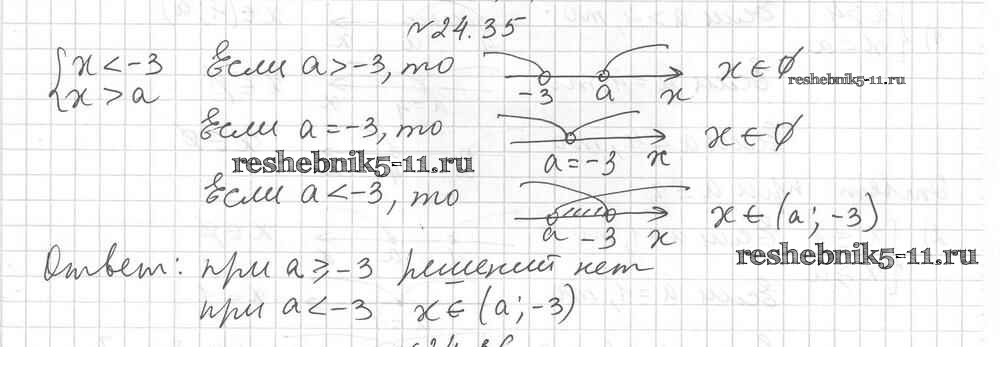 №24.35
{ x < -3 Если a > -3, то -3 a x x ∈ ∅ reshebnik5-11.ru
x > a
Если a = -3, то a = -3 x x ∈ ∅
reshebnik5-11.ru
Если a < -3, то a -3 x x ∈ (a; -3)
reshebnik5-11.ru
Ответ: при a ≥ -3 решений нет
при a < -3 x ∈ (a; -3)